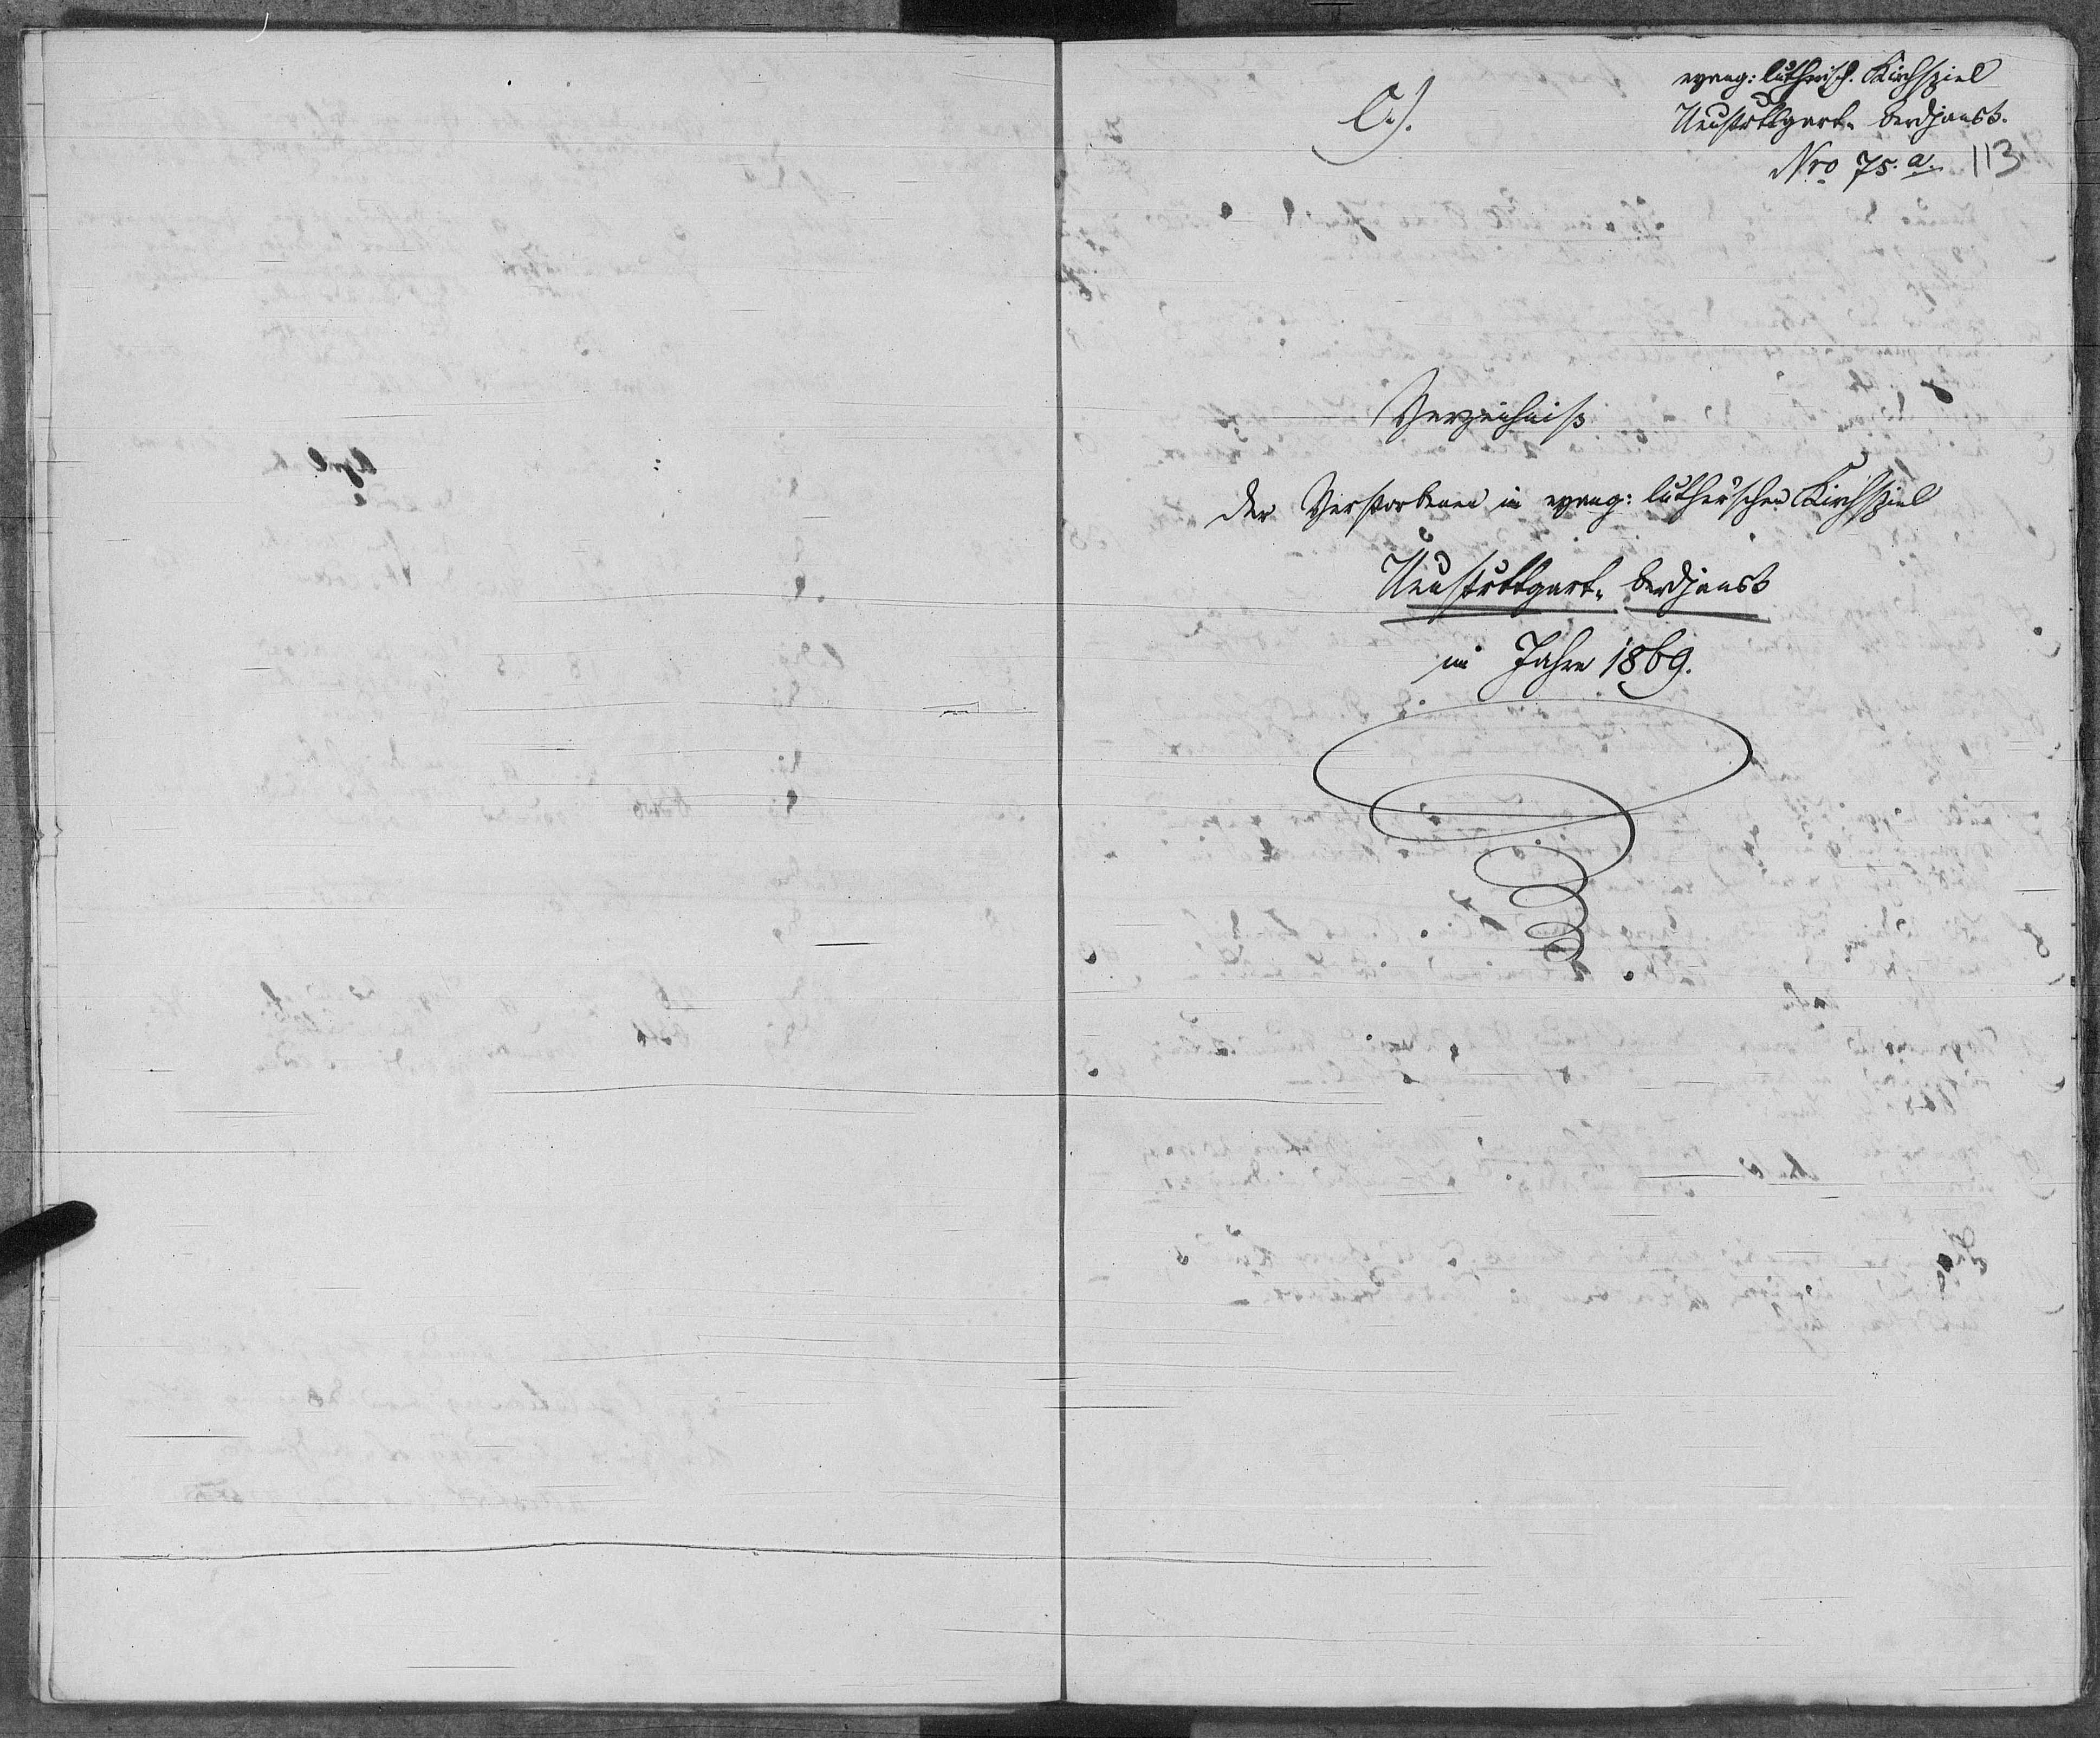 C.).
evang: lutherisch. Kirchspiel
Neustuttgart-Berdjansk.
Nro 75. a. 113
Verzeichniß
der Verstorbenen im evang: luther'schen Kirchspiel
Neustuttgart-Berdjansk
im Jahre 1869.